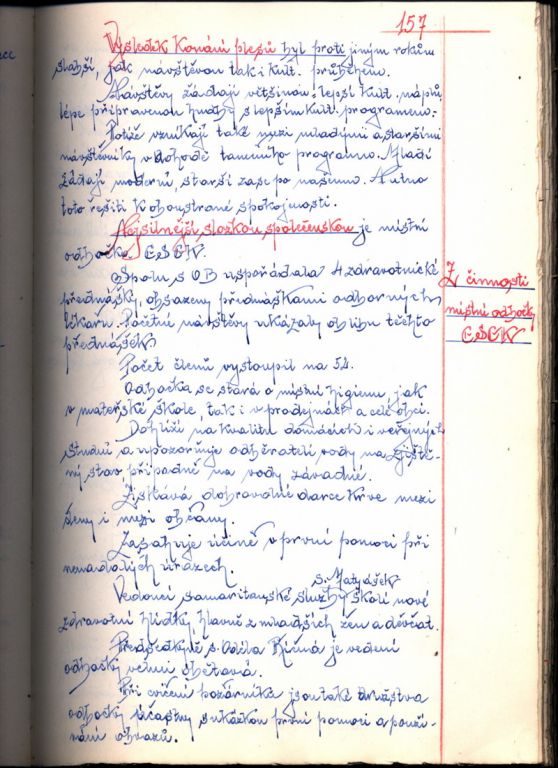 157
Výsledek konání plesů byl proti jiným rokům
slabší, jak návštěvou tak i kult. průběhem.
Návštěvy žádají většinou lepší kult. náplň,
lépe připravenou hudbu s lepším kult. programem.
Potíže vznikají také mezi mladými a staršími
návštěvníky v dohodě tanečního programu. Mladí
žádají moderní, starší zase po našemu. Nutno
toto řešiti k oboustrané spokojenosti.
Nejsilnější složkou společenskou je místní
odbočka ČSČK.
Spolu s OB uspořádala 4 zdravotnické
přednášky, obsazeny přednáškami odborných
lékařů. Početné návštěvy ukázaly oblibu těchto
přednášek.
Z činnosti
místní odbočky
ČSČK
Počet členů vystoupil na 54.
Odbočka se stará o místní higienu, jak
v mateřské škole, tak i v prodejnách a celé obci.
Dohlíží na kvalitu domácích i veřejných
studní a upozorňuje odběratelé vody na zjiště-
ný stav, případně na vody závadné.
Získává dobrovolné dárce krve mezi
ženy i mezi občany.
Zasahuje účinně v první pomoci při
nenadálých úrazech.
s. Matyášek
Vedoucí samaritánské služby školí nové
zdravotní hlídky, hlavně z mladších žen a děvčat.
Předsedkyně s. Odila Říčná je vedení
odbočky velmi obětavá.
Při cvičení požárníků jsou také družstva
odbočky účastny s ukázkou první pomoci a použí-
vání obvazů.